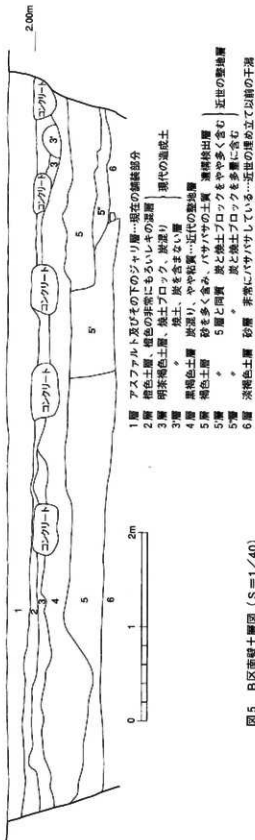 2.00m
コンクリート
コンクリート
コンクリート
コンクリート
コンクリート
1
2
3
4
5
6
5'
5
5"
6
3
3'
0
1
2m
1層 アスファルト及びその下のジャリ層…現在の舗装部分
2層 橙色土層、橙色の非常にもろいレキの混層
3層 明茶褐色土層、焼土ブロック、炭混り
3'層 〃 焼土、炭を含まない層
現代の造成土
4層 黒褐色土層 炭混り、やや粘質…近代の整地層
5層 褐色土層 砂を多く含み、バサバサの土質 遺構検出層
5'層 〃 5層と同質 炭と焼土ブロックをやや多く含む
5"層 〃 炭と焼土ブロックを多量に含む
近世の整地層
6層 淡褐色土層 砂層 非常にバサバサしている…近世の埋め立て以前の干潟
図5 B区南壁土層図(S=1/40)